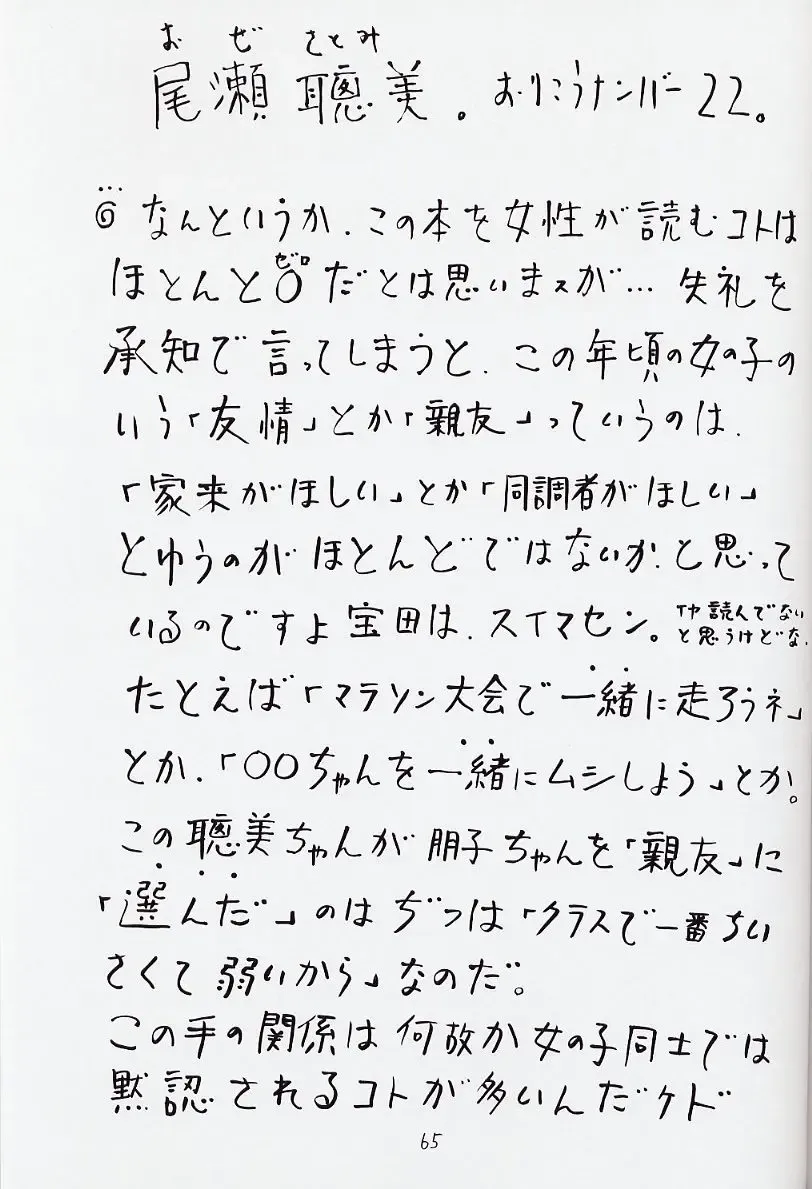 おぜ さとみ
尾瀬 聰美。おりこうナンバー22。
なんというか、この本を女性が読むコトは
ゼロ
ほとんど0だとは思いまスが…失礼を
承知で言ってしまうと、この年頃の女の子の
いう「友情」とか「親友」っていうのは、
「家来がほしい」とか「同調者がほしい」
とゆうのがほとんどではないか、と思って
いるのですよ宝田は、スイマセン。
読んでない
と思うけどな、
たとえば「マラソン大会で一緒に走ろうネ」
とか、「〇〇ちゃんを一緒にムシしよう」とか。
この聰美ちゃんが朋子ちゃんを「親友」に
「選んだ」のはぢつは「クラスで一番ちい
さくて弱いから」なのだ。
この手の関係は何故か女の子同士では
黙認されるコトが多いんだケド
65